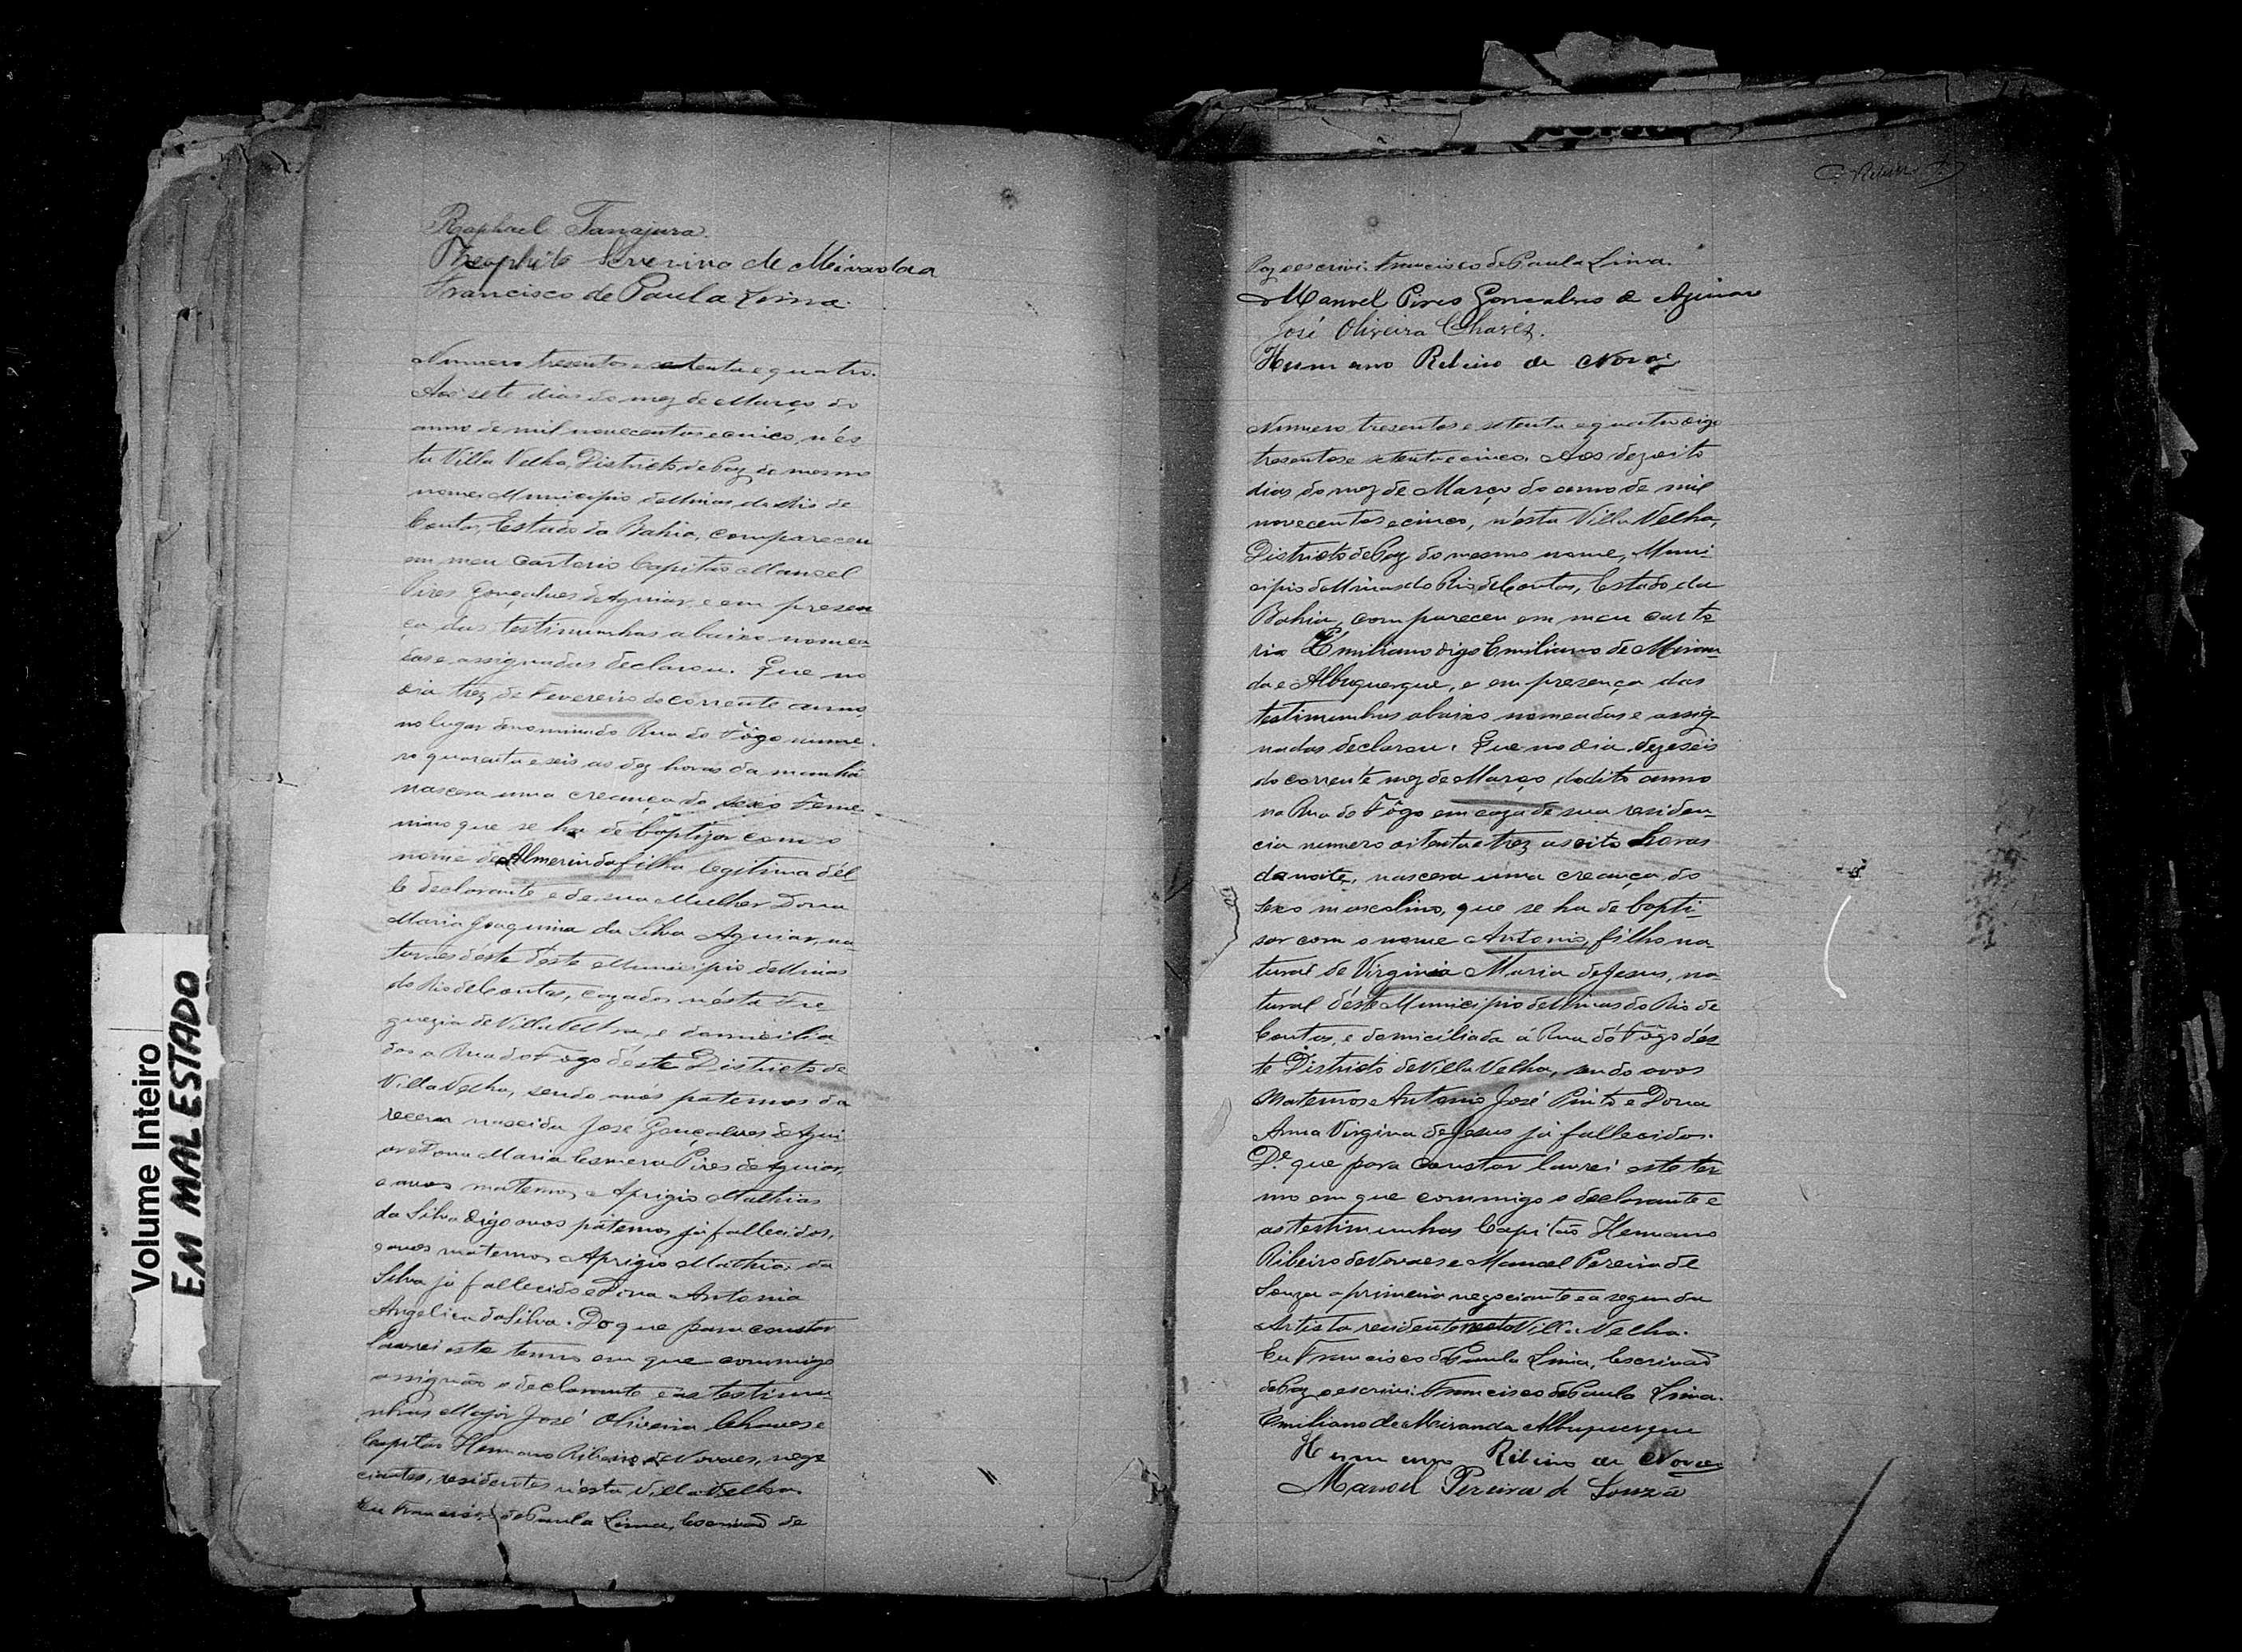 Raphael Tanajura.
Theophilo Severino de Miranda
Francisco de Paula Lima.
Numero tresentos e setenta e quatro.
Aos sete dias do mez de Março do
anno de mil novecentos e cinco, n'es
ta Villa Velha, Districto de Paz do mesmo
nome, Municipio de Minas do Rio de
Contas, Estado da Bahia, compareceu
em meu Cartorio Capitão Manoel
Pires Gonçalves de Aguiar, e em presen
ça das testimunhas abaixo nomea
das e assignadas declarou. Que no
dia trez de Fevereiro do corrente anno,
no lugar denominado Rua do Fôgo nume
ro quarenta e seis as dez horas da manhã
nascera uma creança do sexo Feme
nino que se ha de baptizar com o
nome de Almerinda filha legitima d'él
le declarante e de sua Mulher Dona
Maria Joaquina da Silva Aguiar, na
turaes déste deste Municipio de Minas
do Rio de Contas, cazados n'ésta Fre
guezia de Villa Velha, e domicilia
dos a Rua do Fogo déste Districto de
Villa Velha, sendo avós paternos da
recem nascida José Gonçalves de Agui
ar e Dona Maria Esmera Pires de Aguiar
e avos maternos Aprigio Mathias
da Silva digo avos paternos já fallecidos,
e avos maternos Aprigio Mathias da
Silva já fallecido e Dona Antonia
Angelica da Silva. Do que para constar
lavrei este termo em que commigo
assignão o declarante e as testimu
nhas Major José Oliveira Chaves e
Capitão Hermano Ribeiro de Novaes, nego
ciantes, residentes n'ésta Villa Velha.
Eu Francisco de Paula Lima, Escrivão de
Ribeiro
Paz o escrivi. Francisco de Paula Lima.
Manoel Pires Gonsalves de Aguiar
José Oliveira Chaves.
Hermano Ribeiro de Novaes
Numero tresentos e setenta e quatro digo
tresentos e setenta e cinco. Aos dezoito
dias do mez de Março do anno de mil
novecentos e cinco, n'ésta Villa Velha,
Districto de Paz do mesmo nome, Muni
cipio de Minas do Rio de Contas, Estado da
Bahia, compareceu em meu carto
rio Emiliano digo Emiliano de Miran
da e Albuquerque, e em presença das
testimunhas abaixo nomeadas e assig-
nadas declarou. Que no dia dezeseis
do corrente mez de Março do dito anno
na Rua do Fôgo em caza de sua residen-
cia numero oitenta e trez as oito horas
da noite, nascera uma creança do
sexo masculino, que se ha de bapti-
sar com o nome Antonio, filho na-
tural de Virginia Maria de Jesus, na
tural déste Municipio de Minas do Rio de
Contas, e domiciliada á Rua do Fôgo dés
te Districto de Villa Velha, sendo avos
Maternos Antonio José Pinto e Dona
Anna Virgina de Jesus já fallecidos.
D.º que para constar lavrei este ter
mo em que commigo o declarante e
as testimunhas Capitão Hermano
Ribeiro de Novaes e Manoel Pereira de
Souza o primeiro negociante e a segunda
Artista residente nesta Villa Velha.
Eu Francisco de Paula Lima, Escrivão
de Paz o escrivi. Francisco de Paula Lima.
Emiliano de Miranda Albuquerque
Hermano Ribeiro de Novaes
Manoel Pereira de Souza
Volume Inteiro
EM MAL ESTADO